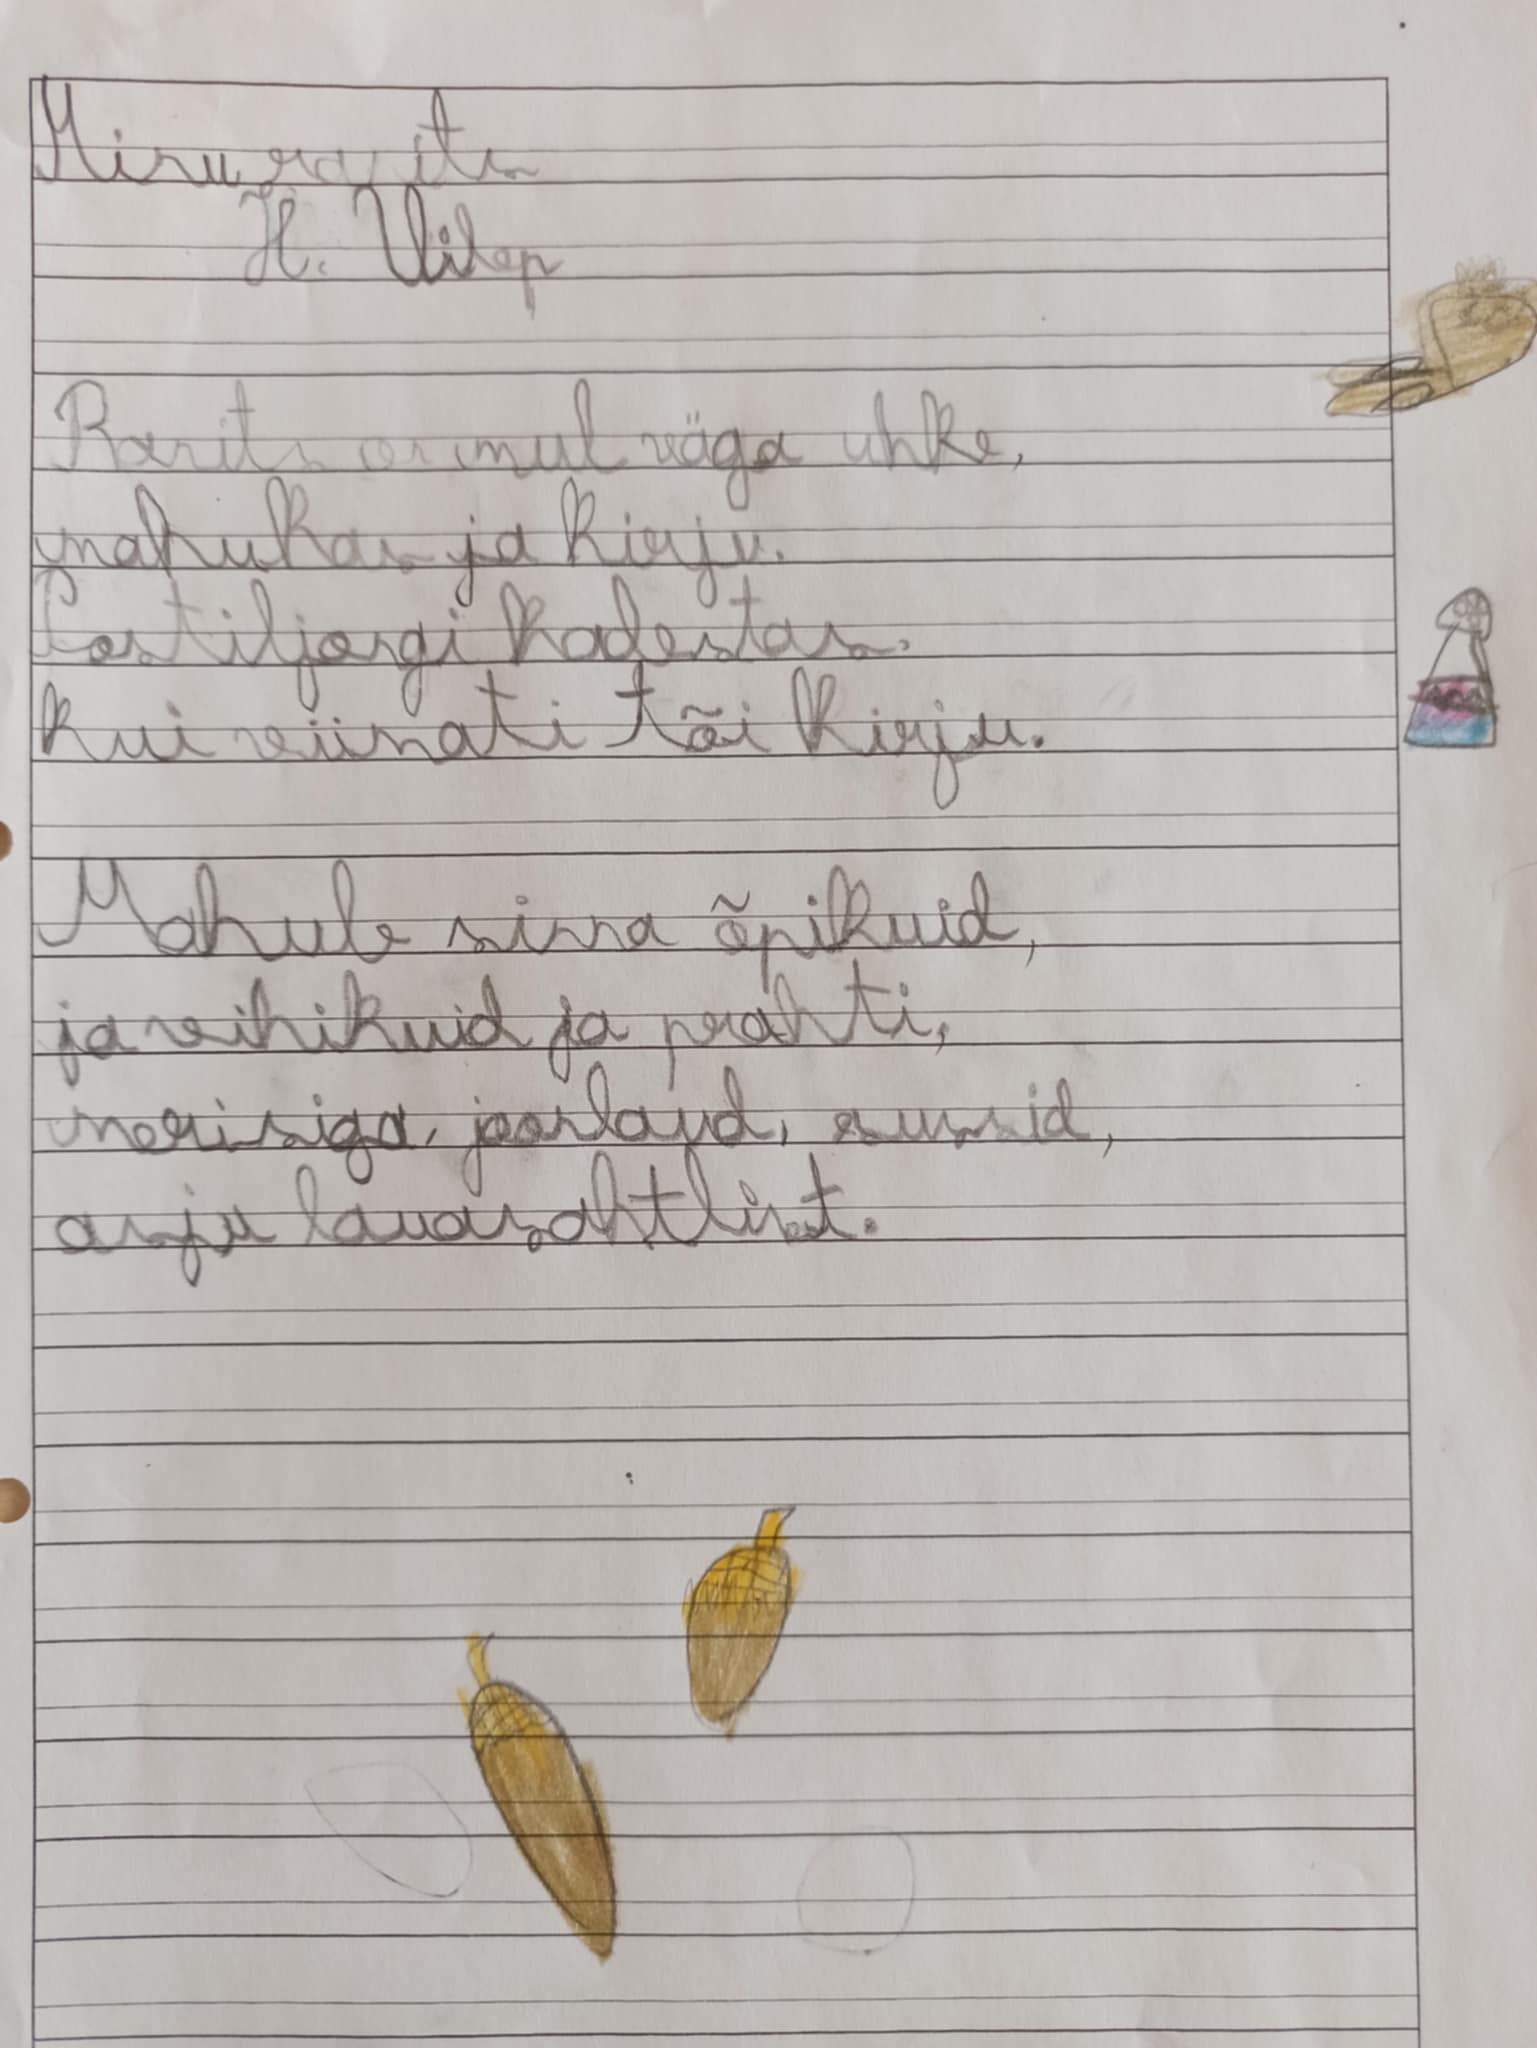 Minu ranits
H. Vilep
Ranits on mul väga uhke,
mahukas ja kirju.
Postiljongi kadestas,
kui viimati tõi kirju.
Mahub sinna õpikuid,
ja vihikuid ja prahti,
merisiga, joonlaud, sussid,
asju lauasahtlist.